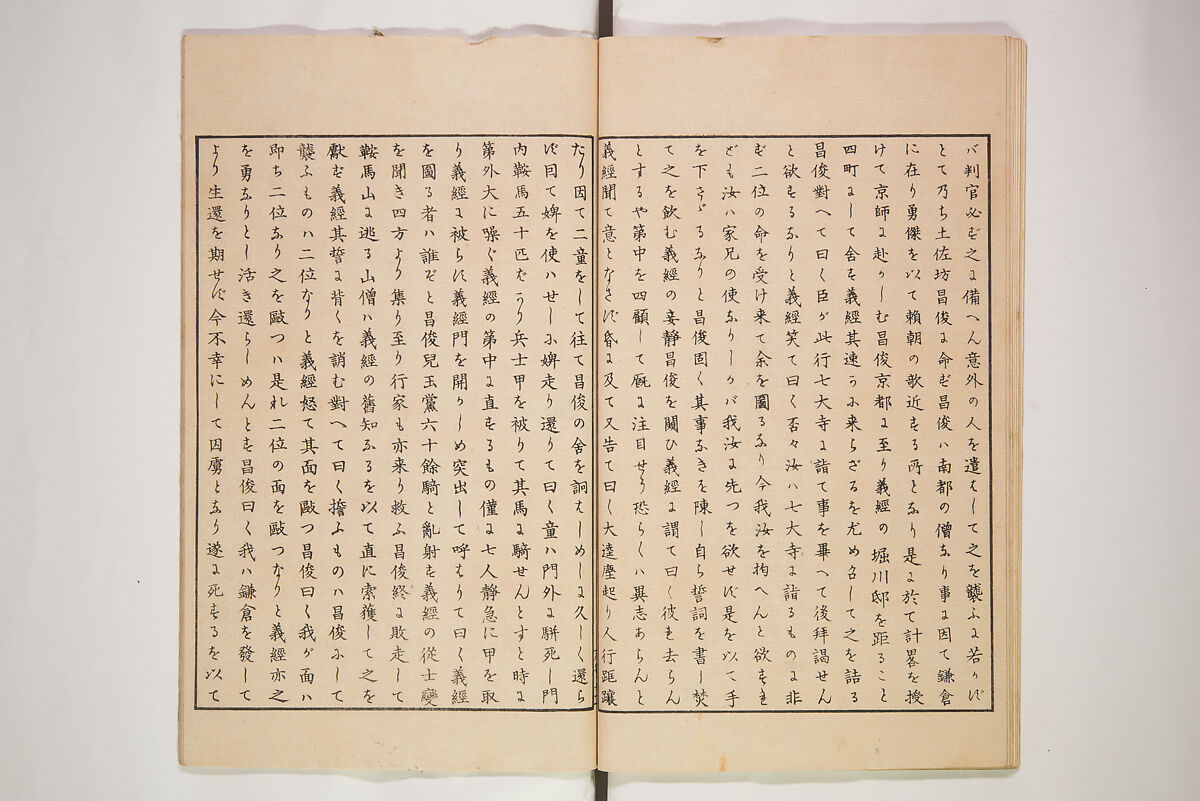 バ判官必ず之に備へん意外の人を遣はして之を襲ふに若かず
とて乃ち土佐坊昌俊に命ず昌俊ハ南都の僧なり事に因て鎌倉
に在り勇傑を以て頼朝の歌近する所となり是に於て計畧を授
けて京師に赴かしむ昌俊京都に至り義經の堀川邸を距ること
四町にして舎す義經其速かに来らざるを尤め召して之を詰る
昌俊對へて曰く臣が此行七大寺に詣て事を畢へて後拜謁せん
と欲するなりと義經笑て曰く否々汝ハ七大寺に詣るものに非
ず二位の命を受け来て余を圖るなり今我汝を拘へんと欲すれ
ども汝ハ家兄の使なりしかバ我汝に先つを欲せず是を以て手
を下さゞるなりと昌俊固く其事なきを陳し自ら誓詞を書し焚
て之を飲む義經の妾靜昌俊を闚ひ義經に謂て曰く彼れ去らん
とするや第中を四顧して厩に注目せり恐らくハ異志あらんと
義經聞て意となさず昏に及て又告て曰く大逵塵起り人行距躟
たり因て二童をして往て昌俊の舎を詗はしめしに久しく還ら
ず囘て婢を使ハせしに婢走り還りて曰く童ハ門外に駢死し門
内鞍馬五十匹ばかり兵士甲を被りて其馬に騎せんとすと時に
第外大に噪ぐ義經の第中に直するもの僅に七人静急に甲を取
り義經に被らす義經門を開かしめ突出して呼はりて曰く義經
を圖る者ハ誰ぞと昌俊兒玉黨六十餘騎と亂射す義經の従士變
を聞き四方より集り至り行家も亦来り救ふ昌俊終に敗走して
鞍馬山に逃る山僧ハ義經の舊知なるを以て直に索獲して之を
獻ず義經其誓に背くを誚む對へて曰く誓ふものハ昌俊にして
襲ふものハ二位なりと義經怒て其面を毆つ昌俊曰く我が面ハ
即ち二位なり之を毆つハ是れ二位の面を毆つなりと義經亦之
を勇なりとし活き還らしめんとす昌俊曰く我ハ鎌倉を發して
より生還を期せず今不幸にして囚虜となり遂に死するを以て